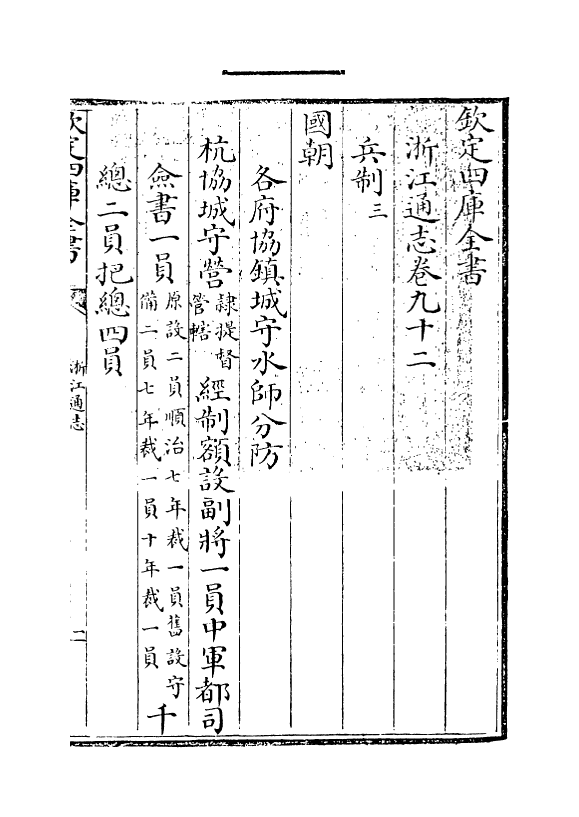 欽定四庫全書
浙江通志卷九十二
兵制三
國朝
各府協鎮城守水師分防
杭協城守營隸提督管轄經制額設副將一員中軍都司
僉書一員原設二員順治七年裁一員舊設守備二員七年裁一員十年裁一員千
總二員把總四員
欽定四庫全書
浙江通志